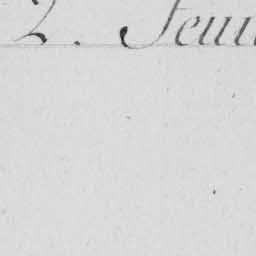 2. Feui